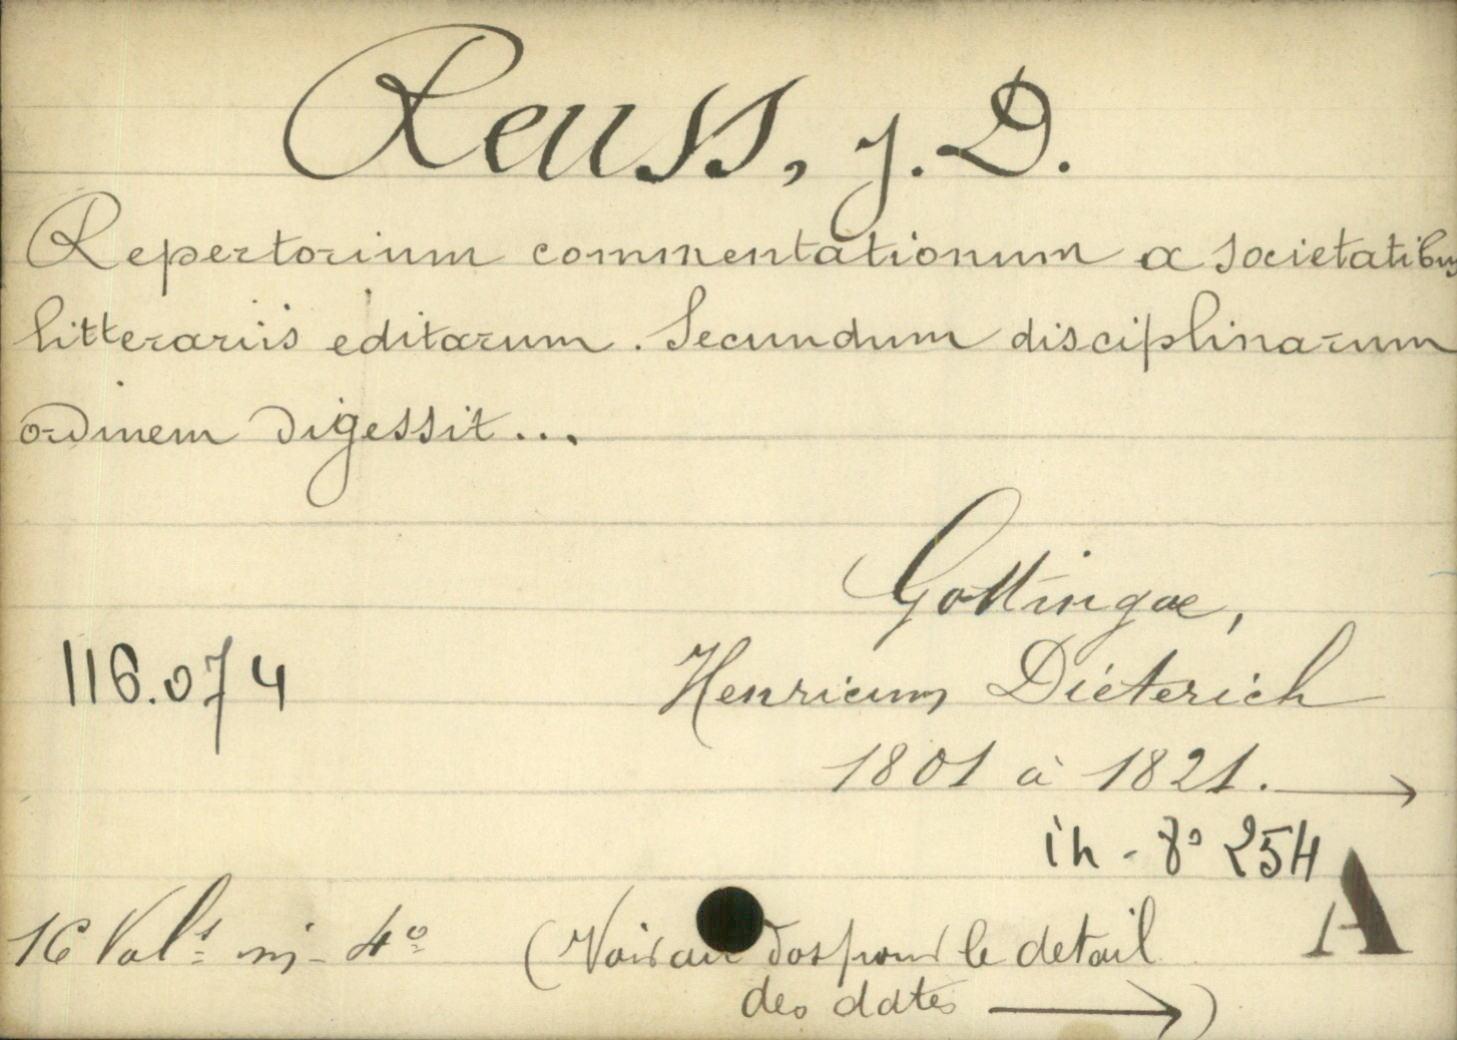 Reuss, J. D.
Repertorium commentationum a societatibus
litterariis editarum. Secundum disciplinarum
ordinem digessit...
Gottingae,
116.074
Henricum Dieterich
1801 à 1821. →
in-8° 254
A
16 Vol.s in-4° (Voir au dos pour le detail
des dates →)